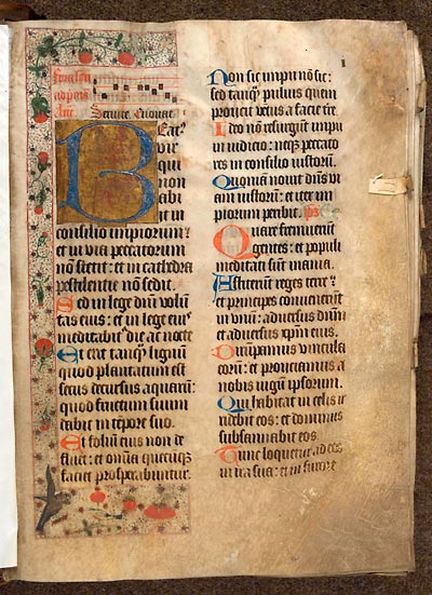 Beat
vir
qui
non
abi
it in
consilio impiorum:
et in via peccatorum
nō stetit: et in cathedra
pestilentie nō sedit.
Sed in lege dnī volūn
tas eius: et in lege eius
meditabit̄ die ac nocte
Et erit tanqȝ lignū
quod plantatum est
secus decursus aquarū:
quod fructum suum
dabit in tēpore suo.
Et foliū eius non de
fluet: et omīa quecūqȝ
faciet prosperabuntur.
Non sic impii nō sic:
sed tanqȝ pulvis quem
proicit ventus a facie tre.
Ideo nō resurgunt impii
in iudicio: neqȝ peccato
res in consilio iustorū.
Quoniā novit dn̄s vi
am iustorū: et iter im
piorum peribit. ps
Quare fremuerūt
gentes: et populi
meditati sūnt inania.
Astiterūt reges terre
et principes convenerūt
in unū: adversus dnm̄
et adversus xpm̄ eius.
Dirūpamus vincula
eorū: et proiciamus a
nobis iugū ipsorum.
Qui habitat in celis ir
ridebit eos: et dominus
subsannabit eos.
Tunc loquetur ad eos
in ira sua: et in furore